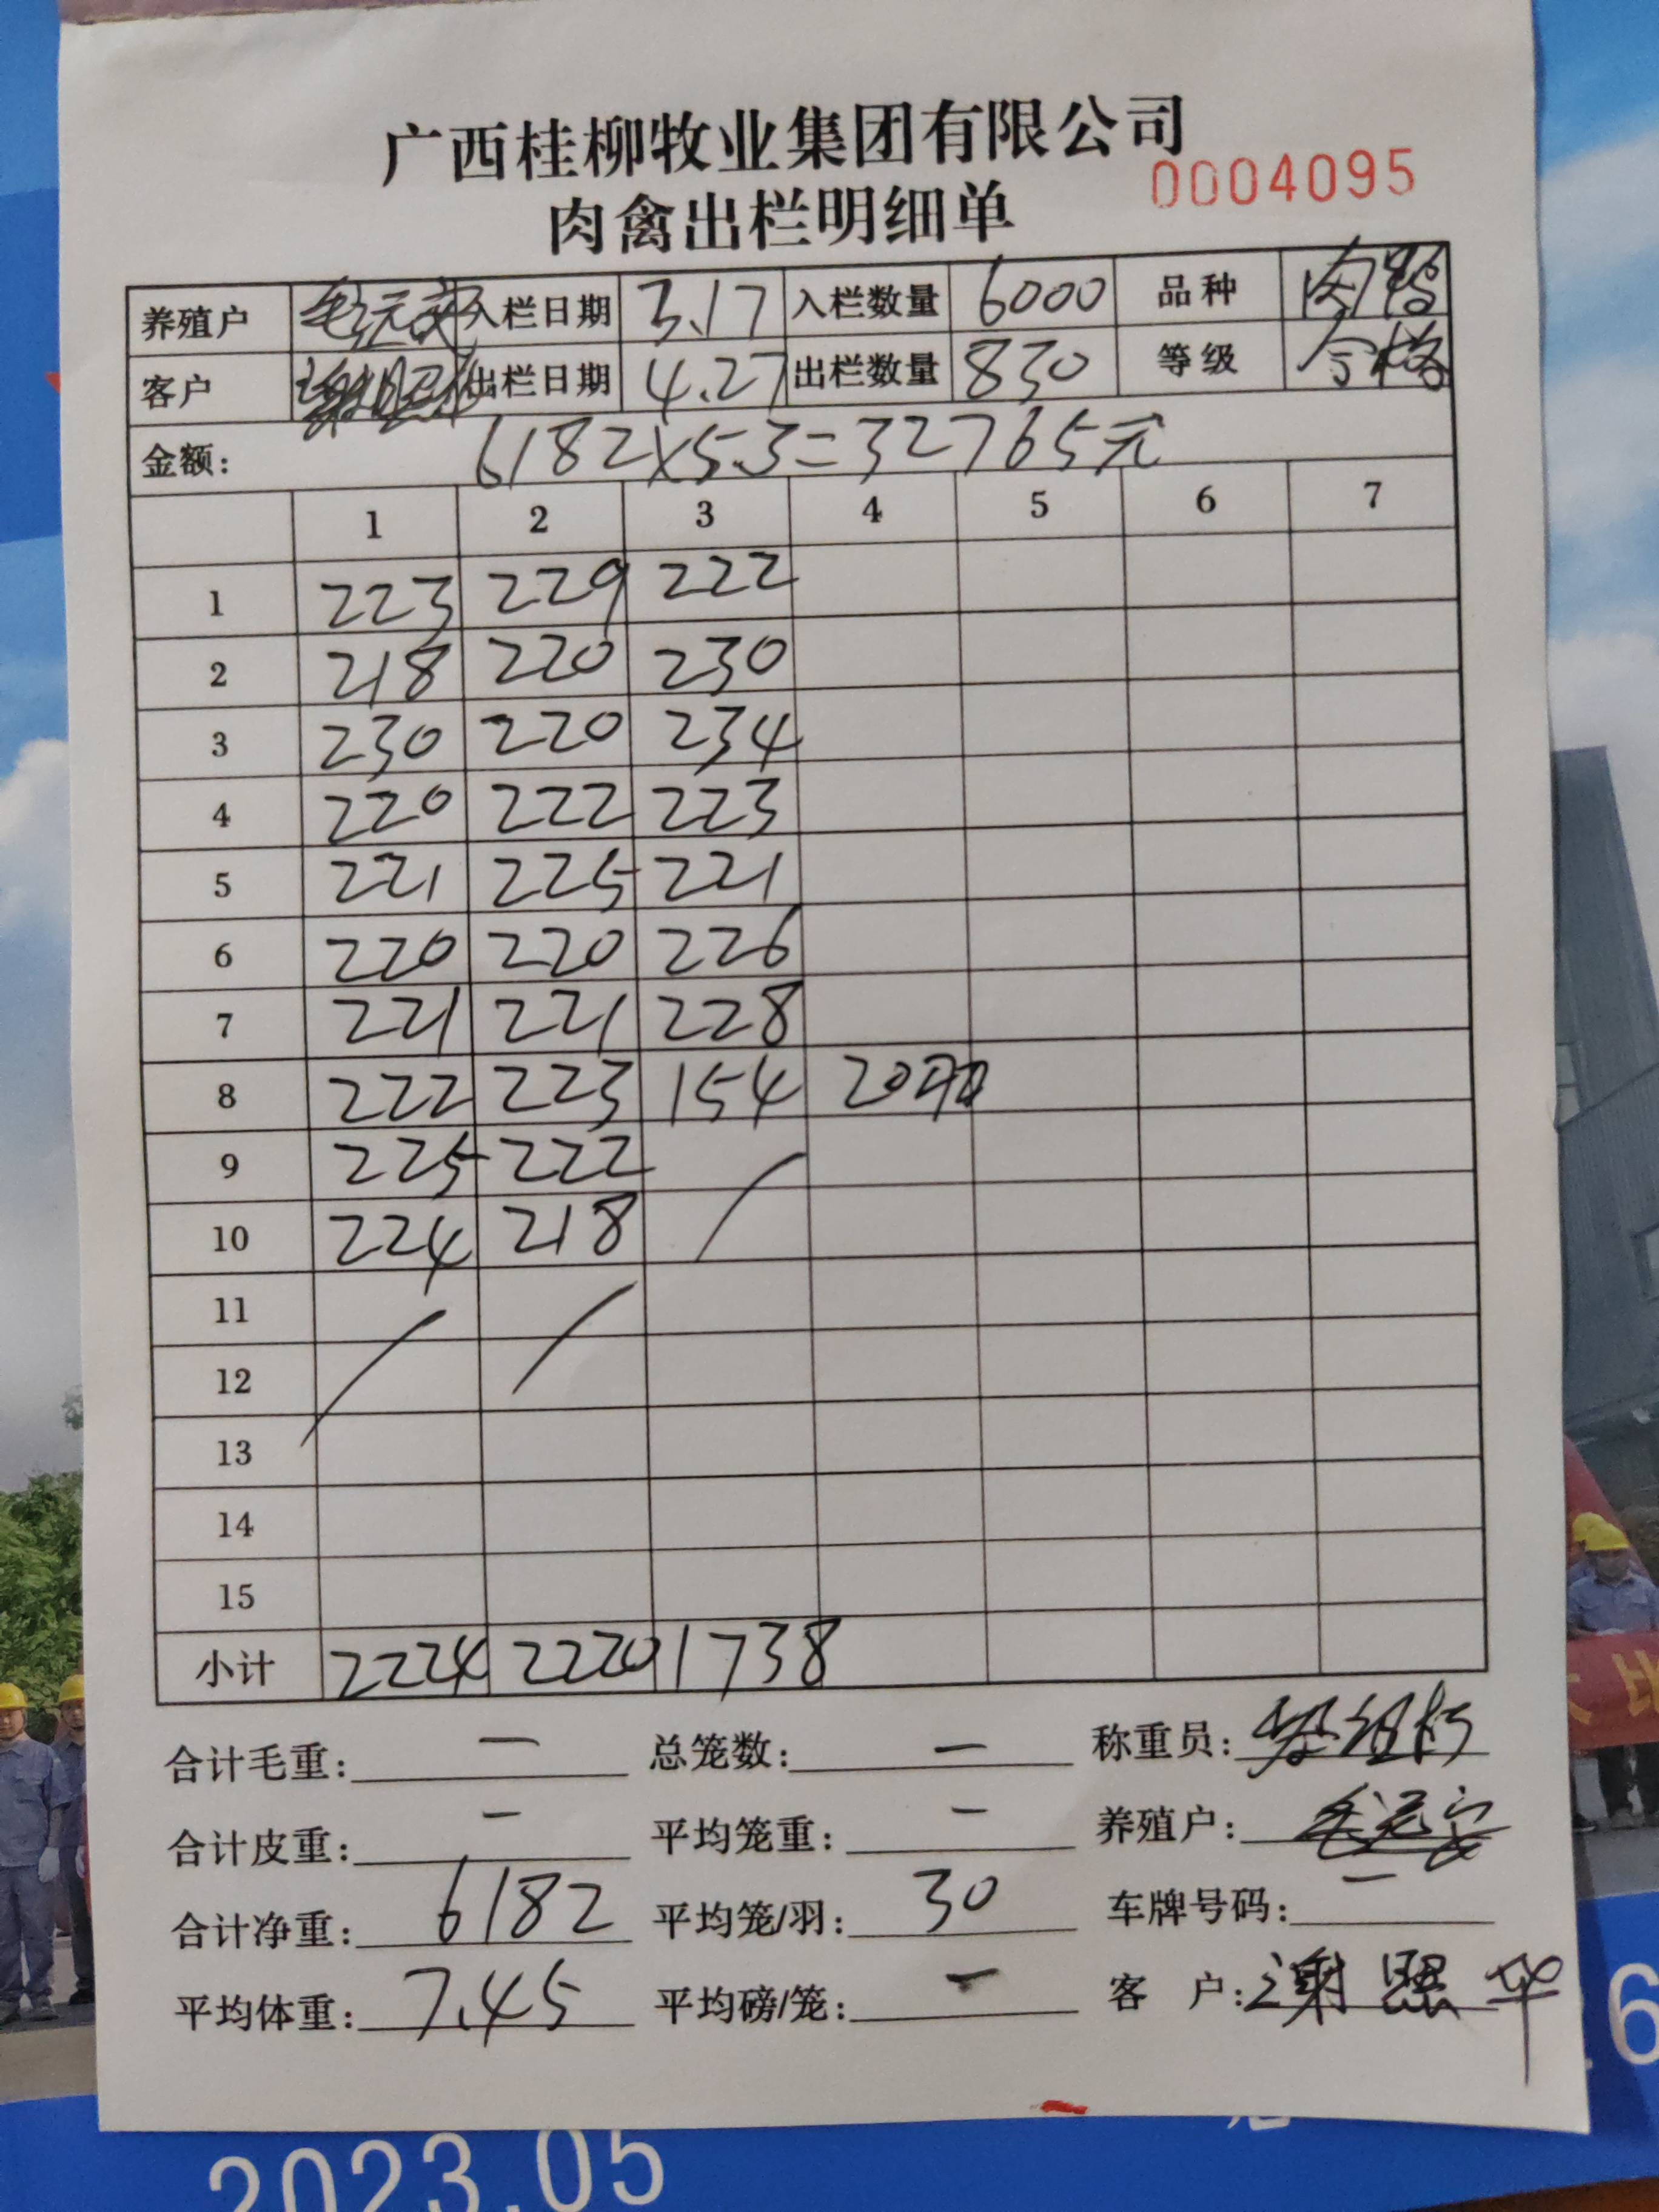 广西桂柳牧业集团有限公司
0004095
肉禽出栏明细单
养殖户 入栏日期 3.17 入栏数量 6000 品种 肉鸭
客户 谢照华 出栏日期 4.27 出栏数量 830 等级 合格
金额: 6182×5.3=32765元
1 2 3 4 5 6 7
1 223 229 222
2 218 220 230
3 230 220 234
4 220 222 223
5 221 225 221
6 220 220 226
7 221 221 228
8 222 223 154
9 225 222
10 224 218
11
12
13
14
15
小计 2224 2220 1738
合计毛重: — 总笼数: — 称重员:
合计皮重: — 平均笼重: — 养殖户:
合计净重: 6182 平均笼/羽: 30 车牌号码: —
平均体重: 7.45 平均磅/笼: — 客 户: 谢照华
2023.05